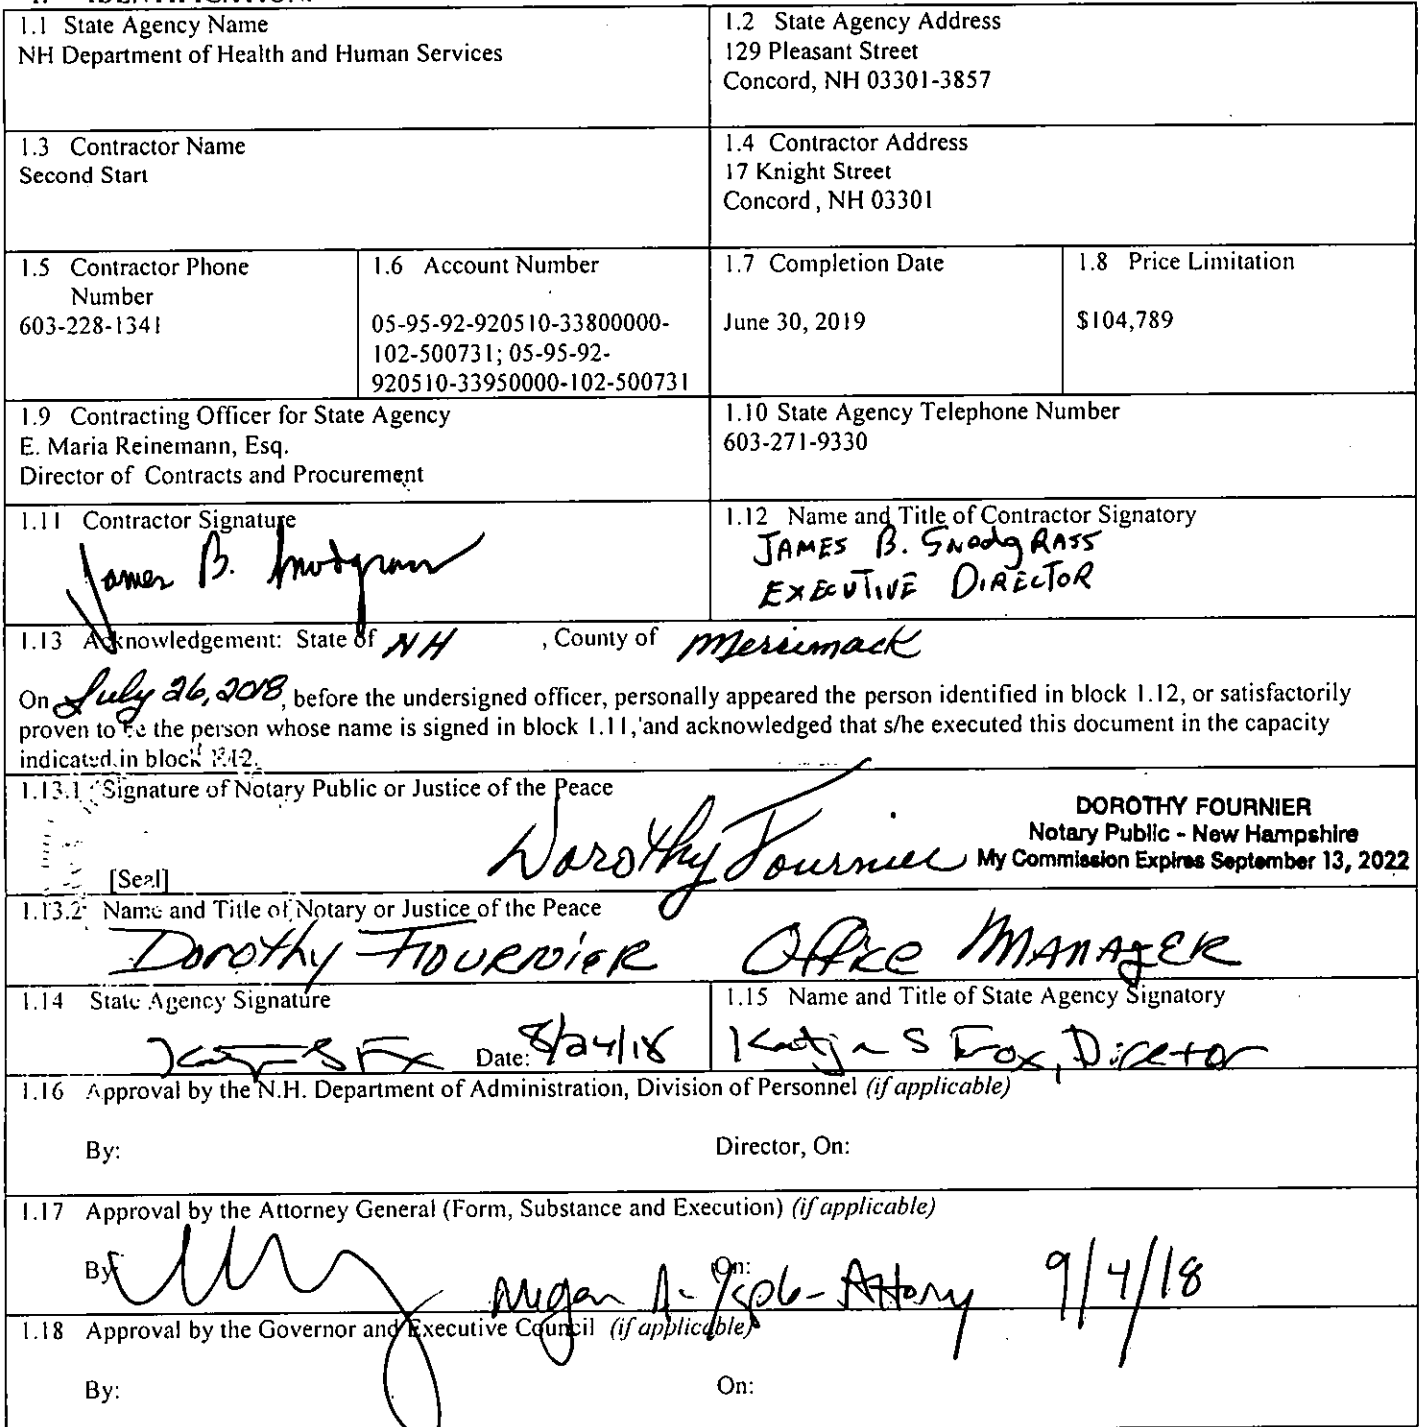 1.1 State Agency Name
NH Department of Health and Human Services
1.2 State Agency Address
129 Pleasant Street
Concord, NH 03301-3857
1.3 Contractor Name
Second Start
1.4 Contractor Address
17 Knight Street
Concord , NH 03301
1.5 Contractor Phone
Number
603-228-1341
1.6 Account Number
05-95-92-920510-33800000-
102-500731; 05-95-92-
920510-33950000-102-500731
1.7 Completion Date
June 30, 2019
1.8 Price Limitation
$104,789
1.9 Contracting Officer for State Agency
E. Maria Reinemann, Esq.
Director of Contracts and Procurement
1.10 State Agency Telephone Number
603-271-9330
1.11 Contractor Signature
James B. Snodgrass
1.12 Name and Title of Contractor Signatory
JAMES B. SNodgRASS
EXECUTIVE DIRECTOR
1.13 Acknowledgement: State of NH , County of Merrimack
On July 26, 2018, before the undersigned officer, personally appeared the person identified in block 1.12, or satisfactorily
proven to be the person whose name is signed in block 1.11, and acknowledged that s/he executed this document in the capacity
indicated in block 1.12.
1.13.1 Signature of Notary Public or Justice of the Peace
Dorothy Fournier
DOROTHY FOURNIER
Notary Public - New Hampshire
My Commission Expires September 13, 2022
[Seal]
1.13.2 Name and Title of Notary or Justice of the Peace
Dorothy FOURNIER Office MANAGER
1.14 State Agency Signature
Date: 8/24/18
1.15 Name and Title of State Agency Signatory
Katja S Fox, Director
1.16 Approval by the N.H. Department of Administration, Division of Personnel (if applicable)
By: Director, On:
1.17 Approval by the Attorney General (Form, Substance and Execution) (if applicable)
By: On:
Megan A. - Attorney 9/4/18
1.18 Approval by the Governor and Executive Council (if applicable)
By: On: